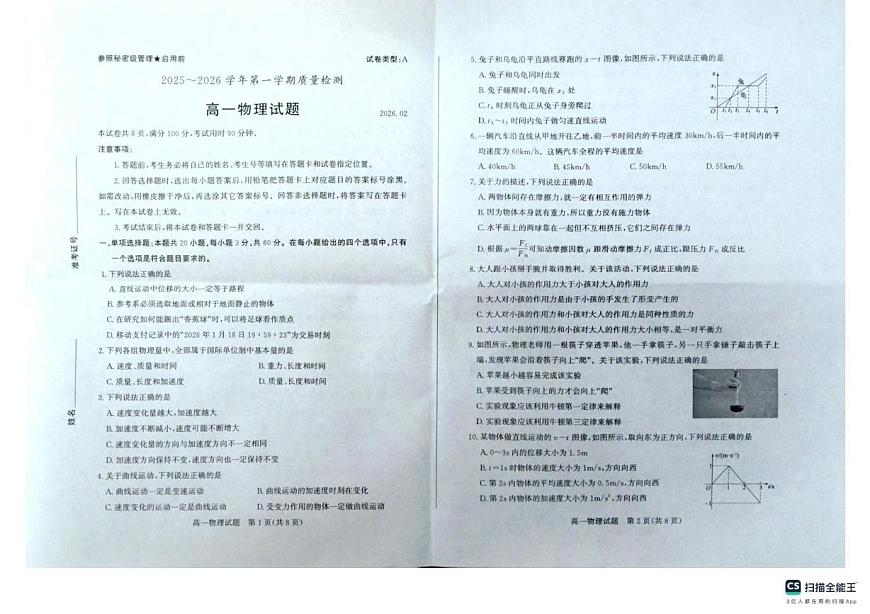 参照秘密级管理★启用前
试卷类型:A
2025～2026 学年第一学期质量检测
高一物理试题
2026.02
本试卷共 8 页,满分 100 分,考试用时 90 分钟。
注意事项:
1.答题前,考生务必将自己的姓名、考生号等填写在答题卡和试卷指定位置。
2.回答选择题时,选出每小题答案后,用铅笔把答题卡上对应题目的答案标号涂黑。
如需改动,用橡皮擦干净后,再选涂其它答案标号。回答非选择题时,将答案写在答题卡
上。写在本试卷上无效。
3.考试结束后,将本试卷和答题卡一并交回。
一、单项选择题:本题共 20 小题,每小题 3 分,共 60 分。在每小题给出的四个选项中,只有
一个选项是符合题目要求的。
1.下列说法正确的是
A.直线运动中位移的大小一定等于路程
B.参考系必须选取地面或相对于地面静止的物体
C.在研究如何能踢出“香蕉球”时,可以将足球看作质点
D.移动支付记录中的“2026 年 1 月 18 日 19:59:23”为交易时刻
2.下列各组物理量中,全部属于国际单位制中基本量的是
A.速度、质量和时间
B.重力、长度和时间
C.质量、长度和加速度
D.质量、长度和时间
3.下列说法正确的是
A.速度变化量越大,加速度越大
B.加速度不断减小,速度可能不断增大
C.速度变化量的方向与加速度方向不一定相同
D.加速度方向保持不变,速度方向也一定保持不变
4.关于曲线运动,下列说法正确的是
A.曲线运动一定是变速运动
B.曲线运动的加速度时刻在变化
C.速度变化的运动一定是曲线运动
D.受变力作用的物体一定做曲线运动
高一物理试题 第 1 页(共 8 页)
准考证号
姓名
5.兔子和乌龟沿平直路线赛跑的 x－t 图像,如图所示,下列说法正确的是
A.兔子和乌龟同时出发
B.兔子睡醒时,乌龟在 x₂ 处
C.t₄ 时刻乌龟正从兔子身旁爬过
D.t₃～t₅ 时间内兔子做匀速直线运动
兔
龟
6.一辆汽车沿直线从甲地开往乙地,前一半时间内的平均速度 30km/h,后一半时间内的平
均速度为 60km/h。这辆汽车全程的平均速度是
A.40km/h
B.45km/h
C.50km/h
D.55km/h
7.关于力的描述,下列说法正确的是
A.两物体间存在摩擦力,就一定有相互作用的弹力
B.因为物体本身就有重力,所以重力没有施力物体
C.水平面上的两球靠在一起但不互相挤压,它们之间存在弹力
D.根据 μ=Ff/FN 可知动摩擦因数 μ 跟滑动摩擦力 Ff 成正比,跟压力 FN 成反比
8.大人跟小孩掰手腕并取得胜利。关于该活动,下列说法正确的是
A.大人对小孩的作用力大于小孩对大人的作用力
B.大人对小孩的作用力是由于小孩的手发生了形变产生的
C.大人对小孩的作用力和小孩对大人的作用力是同种性质的力
D.大人对小孩的作用力和小孩对大人的作用力大小相等,是一对平衡力
9.如图所示,物理老师用一根筷子穿透苹果,他一手拿筷子,另一只手拿锤子敲击筷子上
端,发现苹果会沿着筷子向上“爬”。关于该实验,下列说法正确的是
A.苹果越小越容易完成该实验
B.苹果受到筷子向上的力才会向上“爬”
C.实验现象应该利用牛顿第一定律来解释
D.实验现象应该利用牛顿第三定律来解释
10.某物体做直线运动的 v－t 图像,如图所示,取向东为正方向,下列说法正确的是
A.0～3s 内的位移大小为 1.5m
B.t=1s 时物体的速度大小为 1m/s,方向向西
C.第 2s 内物体的平均速度大小为 0.5m/s,方向向西
D.第 2s 内物体的加速度大小为 1m/s²,方向向西
v/(m·s⁻¹)
t/s
高一物理试题 第 2 页(共 8 页)
CS 扫描全能王
3亿人都在用的扫描App